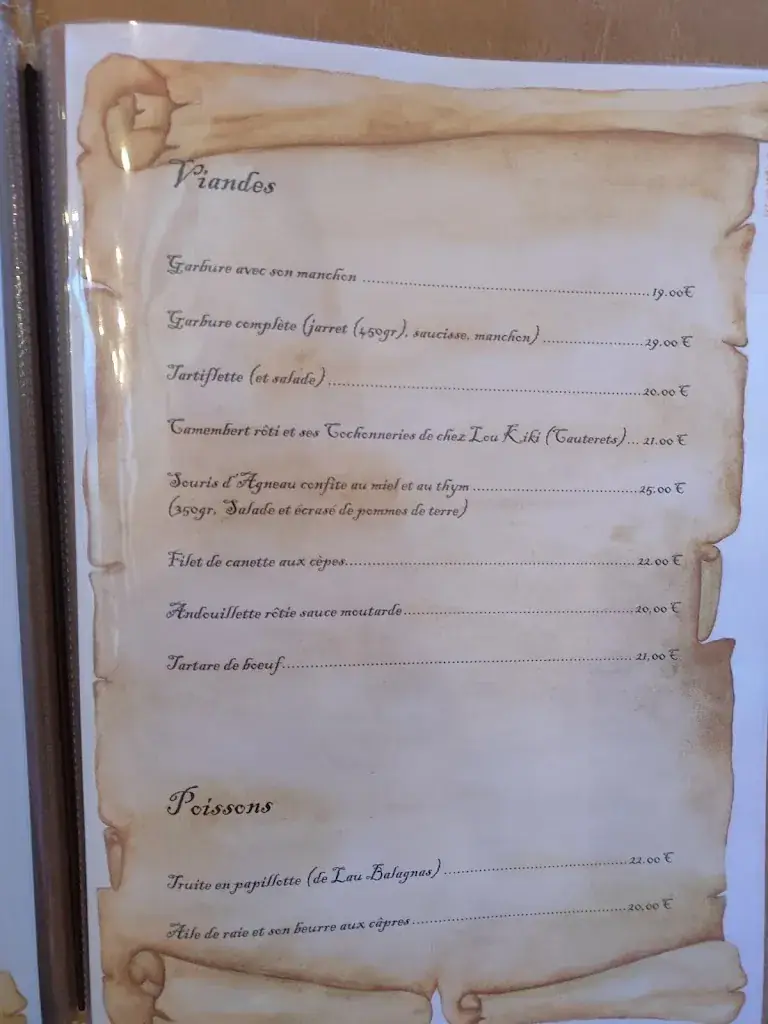 Viandes
Garbure avec son manchon ........ 19.00€
Garbure complète (jarret (450gr), saucisse, manchon) ........ 29.00 €
Tartiflette (et salade) ........ 20.00 €
Camembert rôti et ses Cochonneries de chez Lou Kiki (Cauterets)... 21.00 €
Souris d'Agneau confite au miel et au thym ........ 25.00 €
(350gr, Salade et écrasé de pommes de terre)
Filet de canette aux cèpes........ 22.00 €
Andouillette rôtie sauce moutarde........ 20,00 €
Tartare de boeuf........ 21,00 €
Poissons
Truite en papillotte (de Lau Balagnas) ........ 22.00 €
Aile de raie et son beurre aux câpres ........ 20,00 €